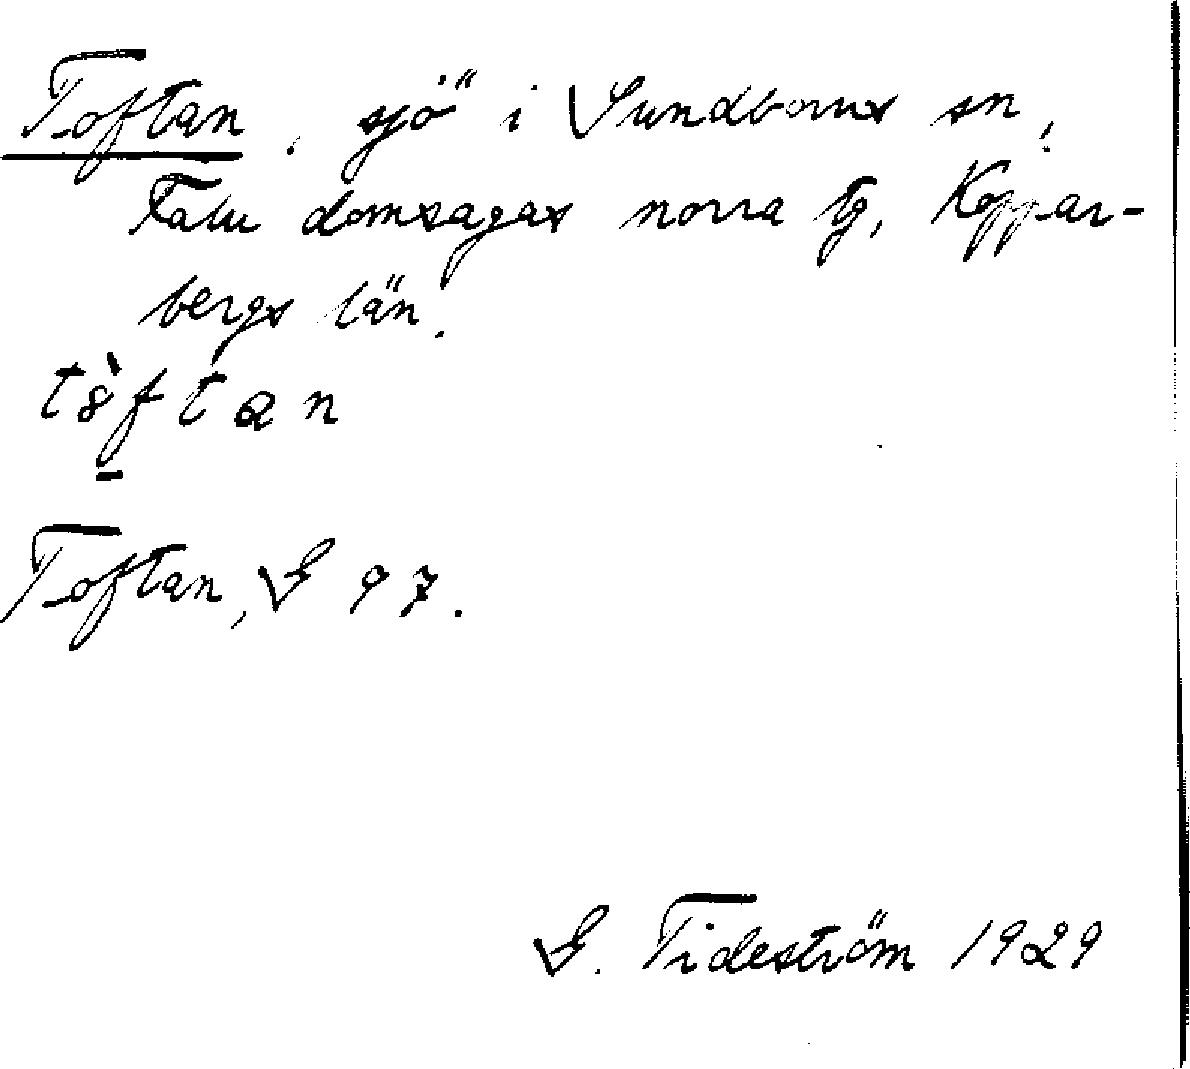 Toftan, sjö i Sundborns sn,
Falu domsagas norra tg, Koppar-
bergs län.
tò̱ftan
Toftan, G 97.
G. Tideström 1929